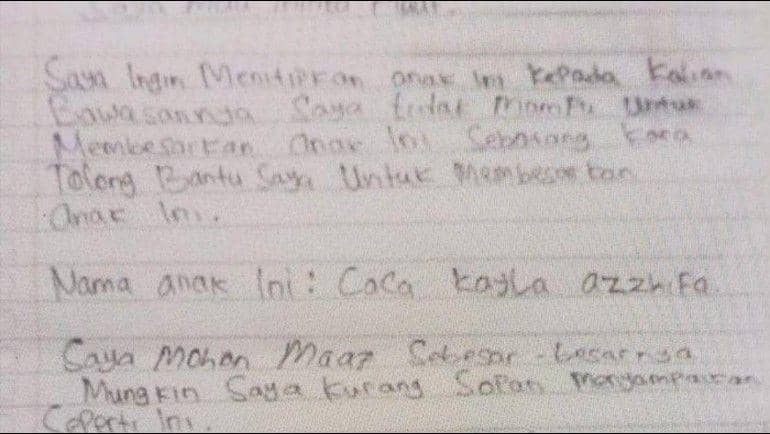 Saya mau minta maaf.
Saya Ingin Menitipkan anak ini kepada Kalian
Bawasannya Saya tidak Mampu Untuk
Membesarkan anak Ini Sebatang kara
Tolong Bantu Saya Untuk Membesarkan
anak Ini.
Nama anak Ini : Caca kayla azzhifa
Saya Mohon Maaf Sebesar-besarnya
Mungkin Saya kurang Sopan Menyampaikan
Seperti Ini.